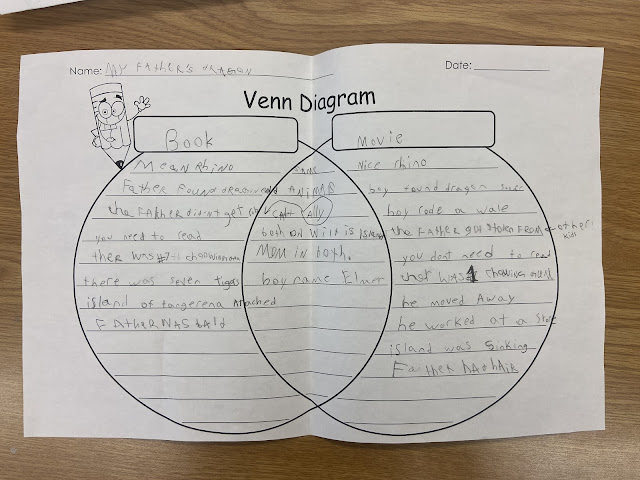 Name: MY FATHER'S DRAGON
Date:
Venn Diagram
Book
Movie
Mean Rhino
FATher Found dragon
the FATher didn't get
you need to read
ther was #7-1
there was seven tigers
island of tangerena Atached
FATher WAS bald
ANIMALS
CAT
Ally
both on Wilt is Island
Men in both.
boy name Elmer
Nice rhino
boy found dragon
boy rode a wale
the FATher got stolen From other kids
you dont need to read
WAS 1
he moved Away
he worked at a Store
island was Sinking
Father had hair